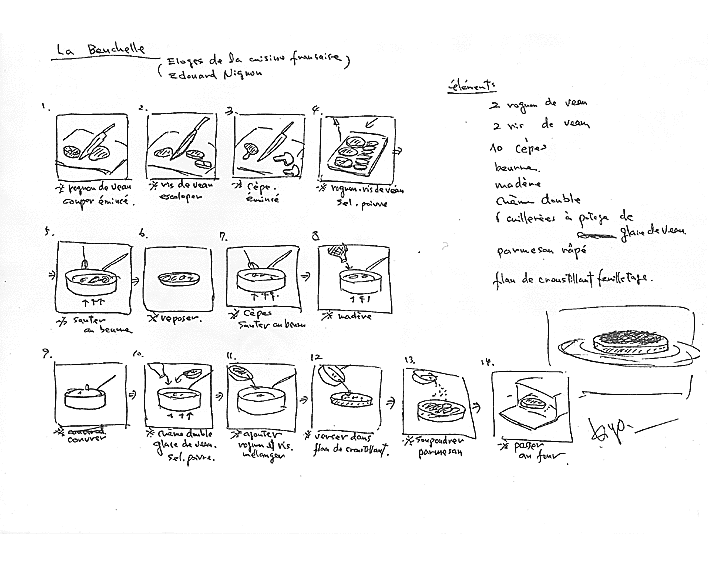 La Beuchelle
(Eloges de la cuisine française)
(Edouard Nignon
éléments
2 rognon de veau
2 ris de veau
10 cèpes
beurre
madère
chème double
6 cuillerées à potage de
glace de veau
parmesan râpé
flan de croustillant feuilletage.
1.
2.
3.
4.
※ rognon de veau
couper émincé.
※ ris de veau
escaloper
※ cèpe.
émincé
※ rognon. ris de veau
sel. poivre
5.
6.
7.
8.
※ sauter
au beurre
※ reposer.
※ Cèpes
sauter au beurre
※ madère
9.
10.
11.
12
13.
14.
※ couvrer
※ chème double
glace de veau.
sel. poivre.
※ ajouter
rognon et ris.
mélanger
※ verser dans
flan de croustillant.
※ saupoudrer
parmesan
※ passer
au four.